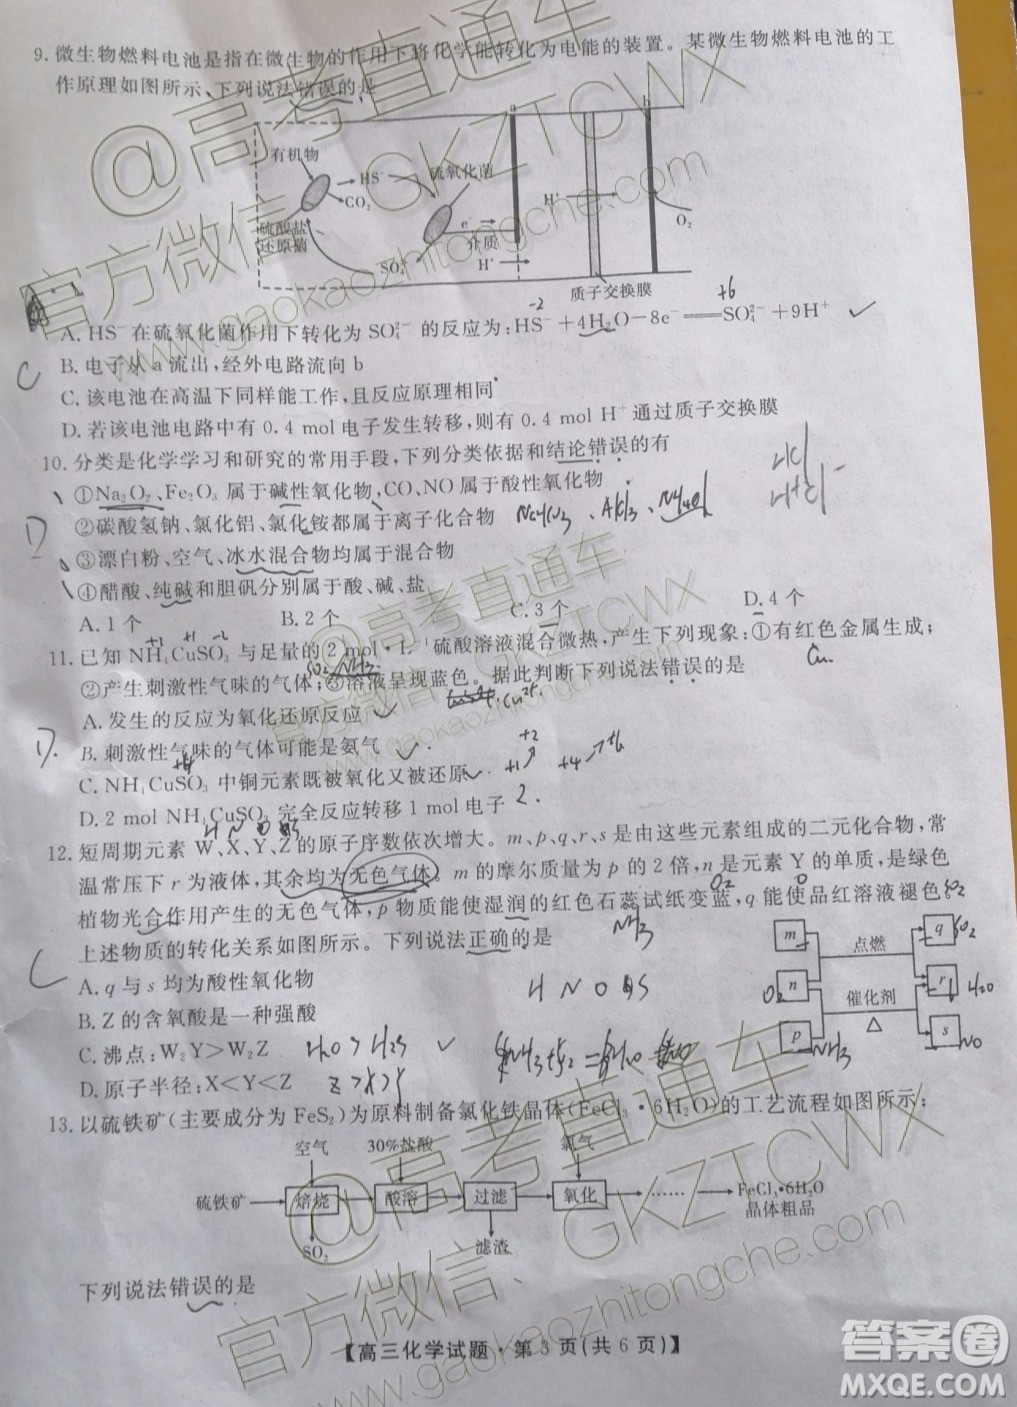 9. 微生物燃料电池是指在微生物的作用下将化学能转化为电能的装置。某微生物燃料电池的工
作原理如图所示,下列说法错误的是
a
b
有机物
HS⁻
硫氧化菌
CO₂
H⁺
O₂
硫酸盐
还原菌
e⁻
介质
SO₄²⁻
H⁺
质子交换膜
-2
+6
A. HS⁻在硫氧化菌作用下转化为SO₄²⁻的反应为:HS⁻+4H₂O-8e⁻══SO₄²⁻+9H⁺ ✓
C
B. 电子从 a 流出,经外电路流向 b
C. 该电池在高温下同样能工作,且反应原理相同
D. 若该电池电路中有 0.4 mol 电子发生转移,则有 0.4 mol H⁺通过质子交换膜
10. 分类是化学学习和研究的常用手段,下列分类依据和结论错误的有
①Na₂O₂、Fe₂O₃ 属于碱性氧化物,CO、NO 属于酸性氧化物
D
②碳酸氢钠、氯化铝、氯化铵都属于离子化合物
③漂白粉、空气、冰水混合物均属于混合物
④醋酸、纯碱和胆矾分别属于酸、碱、盐
A. 1 个 B. 2 个 C. 3 个 D. 4 个
11. 已知 NH₄CuSO₃ 与足量的 2 mol·L⁻¹硫酸溶液混合微热,产生下列现象:①有红色金属生成;
②产生刺激性气味的气体;③溶液呈现蓝色。据此判断下列说法错误的是
A. 发生的反应为氧化还原反应 ✓
D.
B. 刺激性气味的气体可能是氨气 ✓
C. NH₄CuSO₃ 中铜元素既被氧化又被还原
D. 2 mol NH₄CuSO₃ 完全反应转移 1 mol 电子
12. 短周期元素 W、X、Y、Z 的原子序数依次增大。m、p、q、r、s 是由这些元素组成的二元化合物,常
温常压下 r 为液体,其余均为无色气体。m 的摩尔质量为 p 的 2 倍,n 是元素 Y 的单质,是绿色
植物光合作用产生的无色气体,p 物质能使湿润的红色石蕊试纸变蓝,q 能使品红溶液褪色。
上述物质的转化关系如图所示。下列说法正确的是
NH₃
m
点燃
q
SO₂
C
A. q 与 s 均为酸性氧化物
H N O S
O₂
n
r
H₂O
催化剂
△
B. Z 的含氧酸是一种强酸
p
NH₃
s
NO
C. 沸点:W₂Y>W₂Z H₂O > H₂S ✓
D. 原子半径:X<Y<Z Z>X>Y
13. 以硫铁矿(主要成分为 FeS₂)为原料制备氯化铁晶体(FeCl₃·6H₂O)的工艺流程如图所示:
空气 30%盐酸 氯气
硫铁矿 焙烧 酸溶 过滤 氧化 …… FeCl₃·6H₂O
晶体粗品
SO₂ 滤渣
下列说法错误的是
【高三化学试题·第 3 页(共 6 页)】
@高考直通车
官方微信:GKZTCWX
www.gaokaozhitongche.com
@高考直通车
GKZTCWX
@高考直通车
官方微信:GKZTCWX
www.gaokaozhitongche.com
答案圈
MXQE.COM